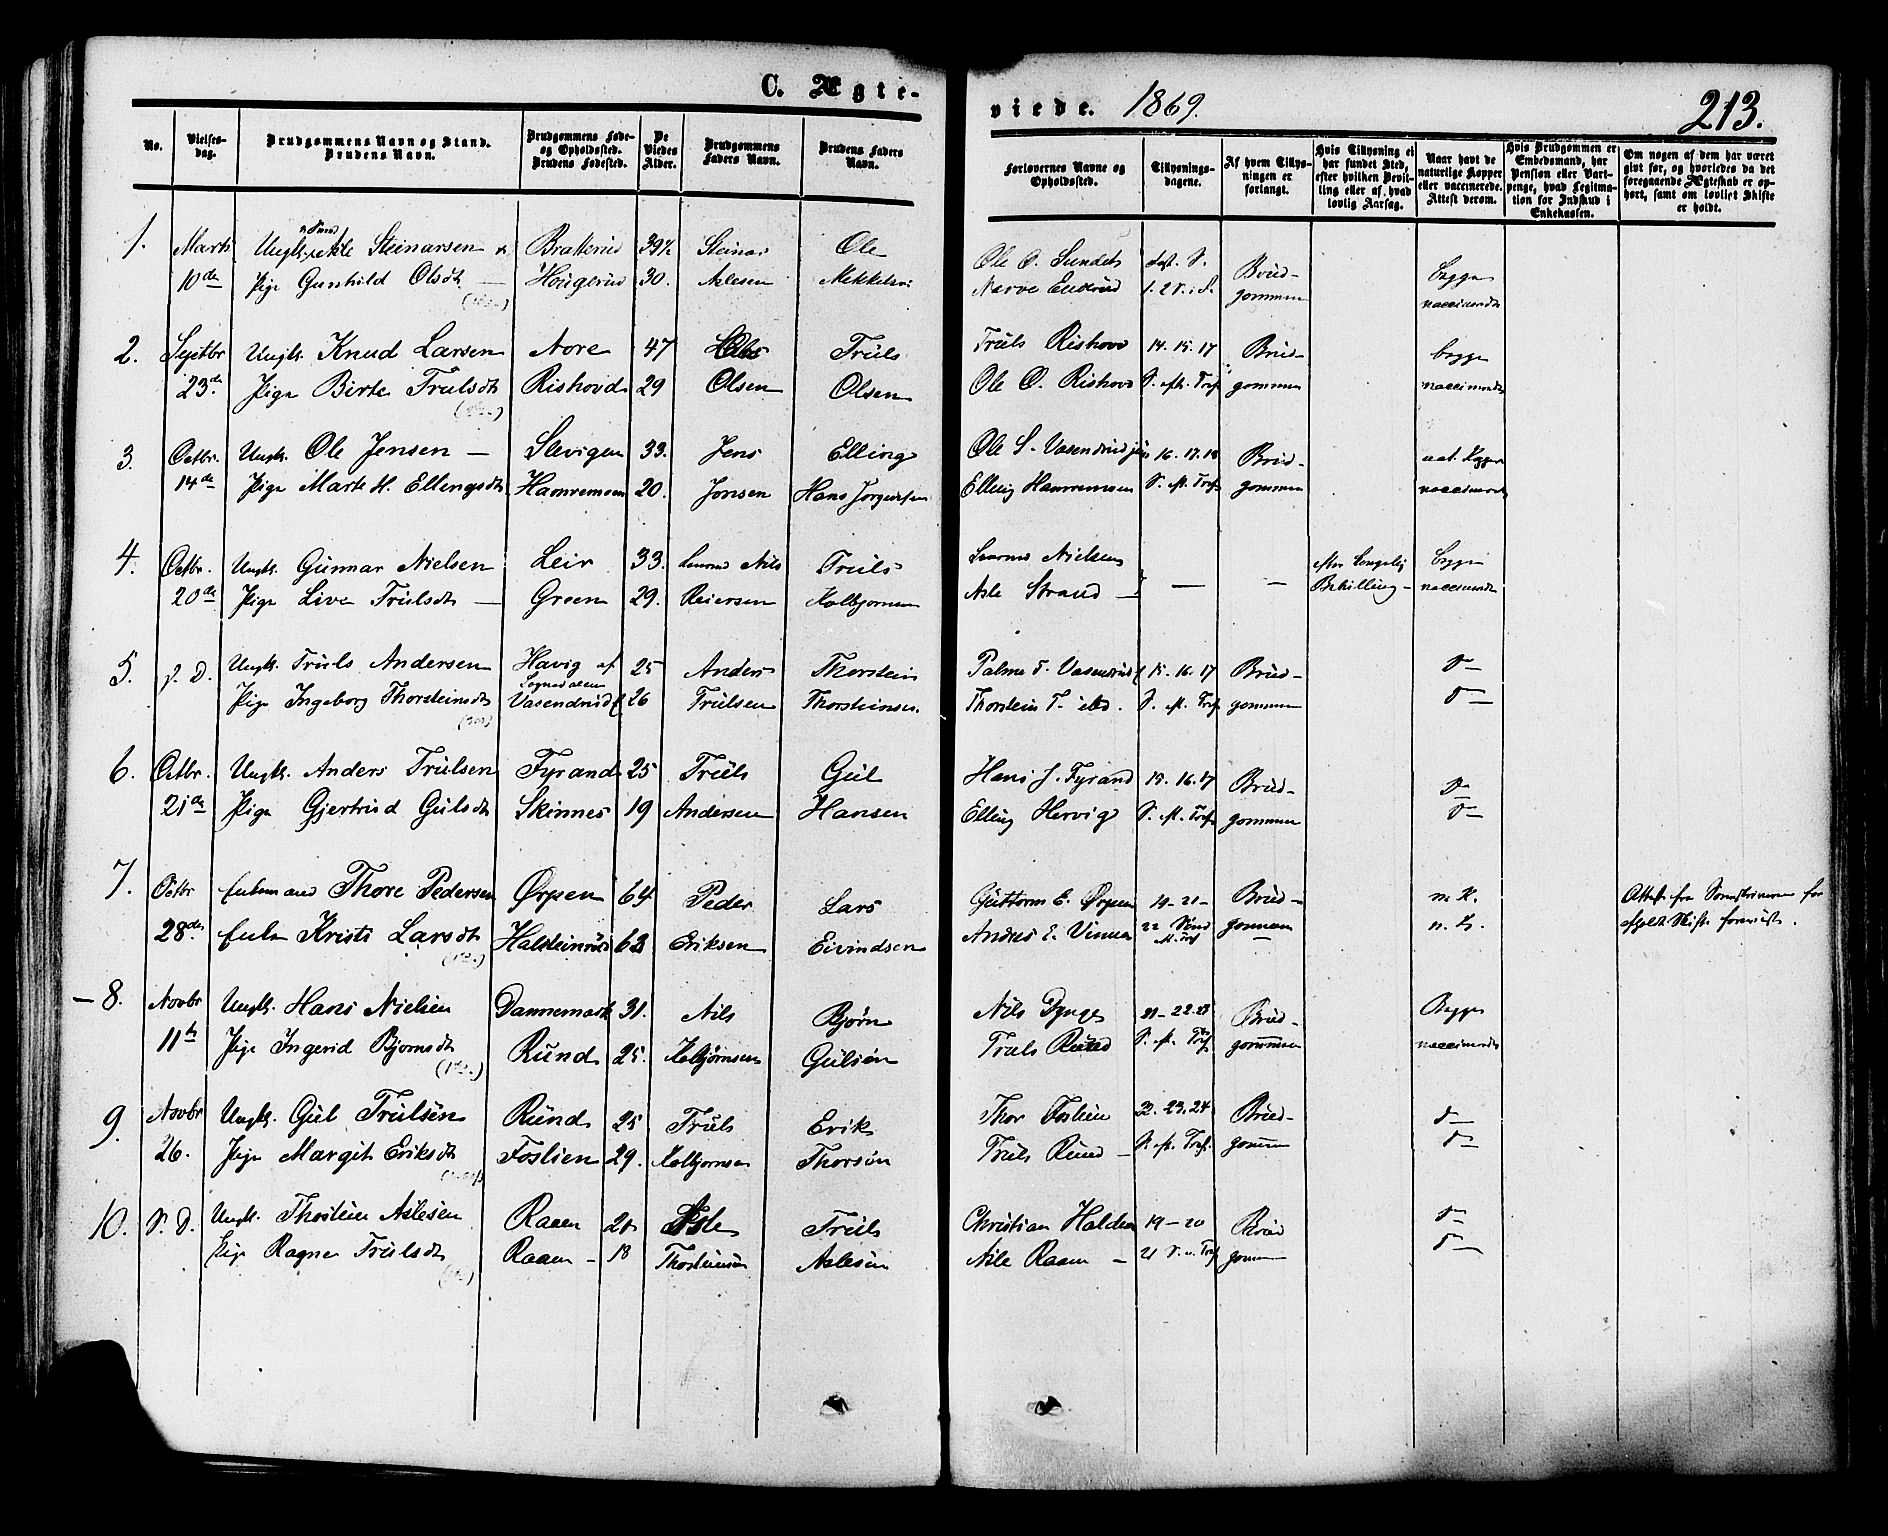 C. Ægte-
viede. 1869.
213.
No.
Vielses-
dag.
Brudgommens Navn og Stand.
Brudens Navn.
Brudgommens Føde-
og Opholdssted.
Brudens Fødested.
De
Viedes
Alder.
Brudgommens
Faders Navn.
Brudens Faders
Navn.
Forlovernes Navne og
Opholdssted.
Tillysnings-
dagene.
Af hvem Tillys-
ningen er
forlangt.
Hvis Tillysning ei
har fundet Sted,
efter hvilken Bevil-
ling eller af hvad
lovlig Aarsag.
Naar havt de
naturlige Kopper
eller vaccinerede.
Attest derom.
Hvis Brudgommen er
Embedsmand, har
Pension eller Vart-
penge, hvad Legitima-
tion for Indskud i
Enkekassen.
Om nogen af dem har været
gift før, og hvorledes da det
foregaaende Ægteskab er op-
hørt, samt om lovligt Skifte
er holdt.
1. Marts Ungk. Steinarsen Bratterud 39½ Steinar Ole Ole O. Sundet
10de Pige Gunhild Olsdt 30. Aslesen Mikkelsen Brud-
gommen Begge
vaccinerede
2. Septbr Ungk. Knud Larsen Nore 47 Truls Truls Rishovd 14. 15. 17 Brud- begge
23de Pige Birte Trulsdt Rishovd 29 Olsen Olsen Ole O. Rishovd S. eft. Tref gommen vaccinerede
3. Octbr. Ungk. Ole Jensen — Slevigen 33. Jens Elling Ole S. 16. 17. 18 Brud-
14de Pige Marte H. Ellengsdt Hamremoen 20. Jonsen Hans Jørgensen Elling Hamremoen S. eft. Tref gommen vaccinerede
4. Octbr. Ungk. Gunnar Nielsen Leir 33. Nils Truls Nielsen efter kongelig begge
20de Pige Live Trulsdt — Green 29. Reiersen Kolbjørnsen Asle Strand — — — Bevilling — vaccinerede
5. S. D. Ungk. Truls Andersen Havig af 25 Anders Thorstein Palme T. Vasendrud 15. 16. 17 Brud- D—
Sognedalen
Pige Ingeborg Thorsteinsdt Vasendrud 26 Trulsen Thorsteinsen Thorstein T. ibd. S. eft. Tref gommen D—
6. Octbr. Ungk. Anders Trulsen Fyrand 25 Truls Gul Hans J. Fyrand 15. 16. 17 Brud- D—
21de Pige Gjertrud Gulsdt Skinnes 19 Andersen Hansen Elling Hervig S. eft. Tref gommen D—
7. Octbr Enkemand Thore Pedersen Ørpen 64 Peder Lars Guttorm E. Ørpen 19-21- Brud- n. K. Attest fra Sorenskriveren for
28de Enke Kristi Larsdt 63 Eriksen Eivindsen Andres E. 22 gommen n. K. afholdt Skifte forevist.
— 8. Novbr Ungk. Hans Nielsen Dannemark 31. Nils Bjørn Nils 21-22.23 Brud- Begge
11te Pige Ingerid Bjørnsdt Rund 25. Kolbjørnsen Gulsen Truls Ruud S. eft. Tref gommen vaccinerede
9. Novbr Ungk. Gul Trulsen Rund 25 Truls Erik Thor Foslien 22. 23. 24 Brud- D—
26. Pige Margit Eriksdt Foslien 29. Kolbjørnsen Thorsen Truls Ruud — S. eft. Tref. gommen D—
10. S. D. Ungk. Thorstein Aslesen Raaen Asle Truls Christian 19-20 Brud D—
Pige Ragne Trulsdt Raaen — 18 Thorsteinsen Aslesen Asle Raaen — 21 gommen D—